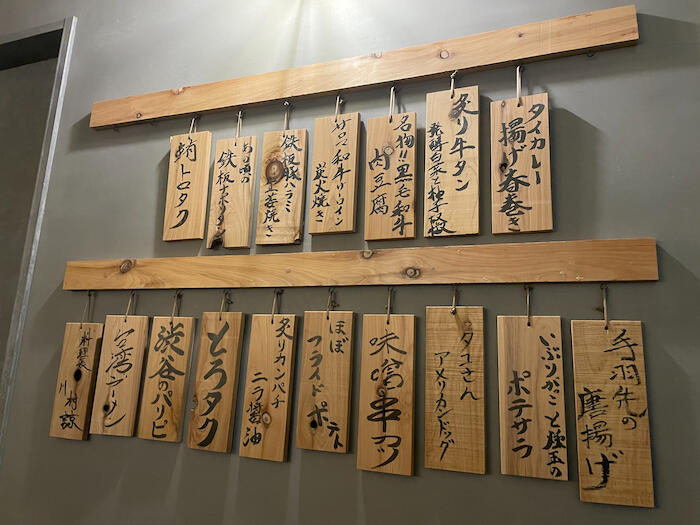 タイカレー
揚げ春巻き
炙り牛タン
発酵白菜と柚子胡椒
名物!!黒毛和牛
肉豆腐
サロマ和牛サーロイン
炭火焼き
鉄板豚ハラミ
生姜焼き
あの頃の
鉄板ナポリタン
トロタク
手羽先の
唐揚げ
いぶりがっこと煙玉の
ポテサラ
タコさん
アメリカンドッグ
味噌串カツ
ほぼ
フライドポテト
炙りカンパチ
ニラ醤油
とろタク
渋谷のパリピ
台湾ラーメン
料理長
川村諒